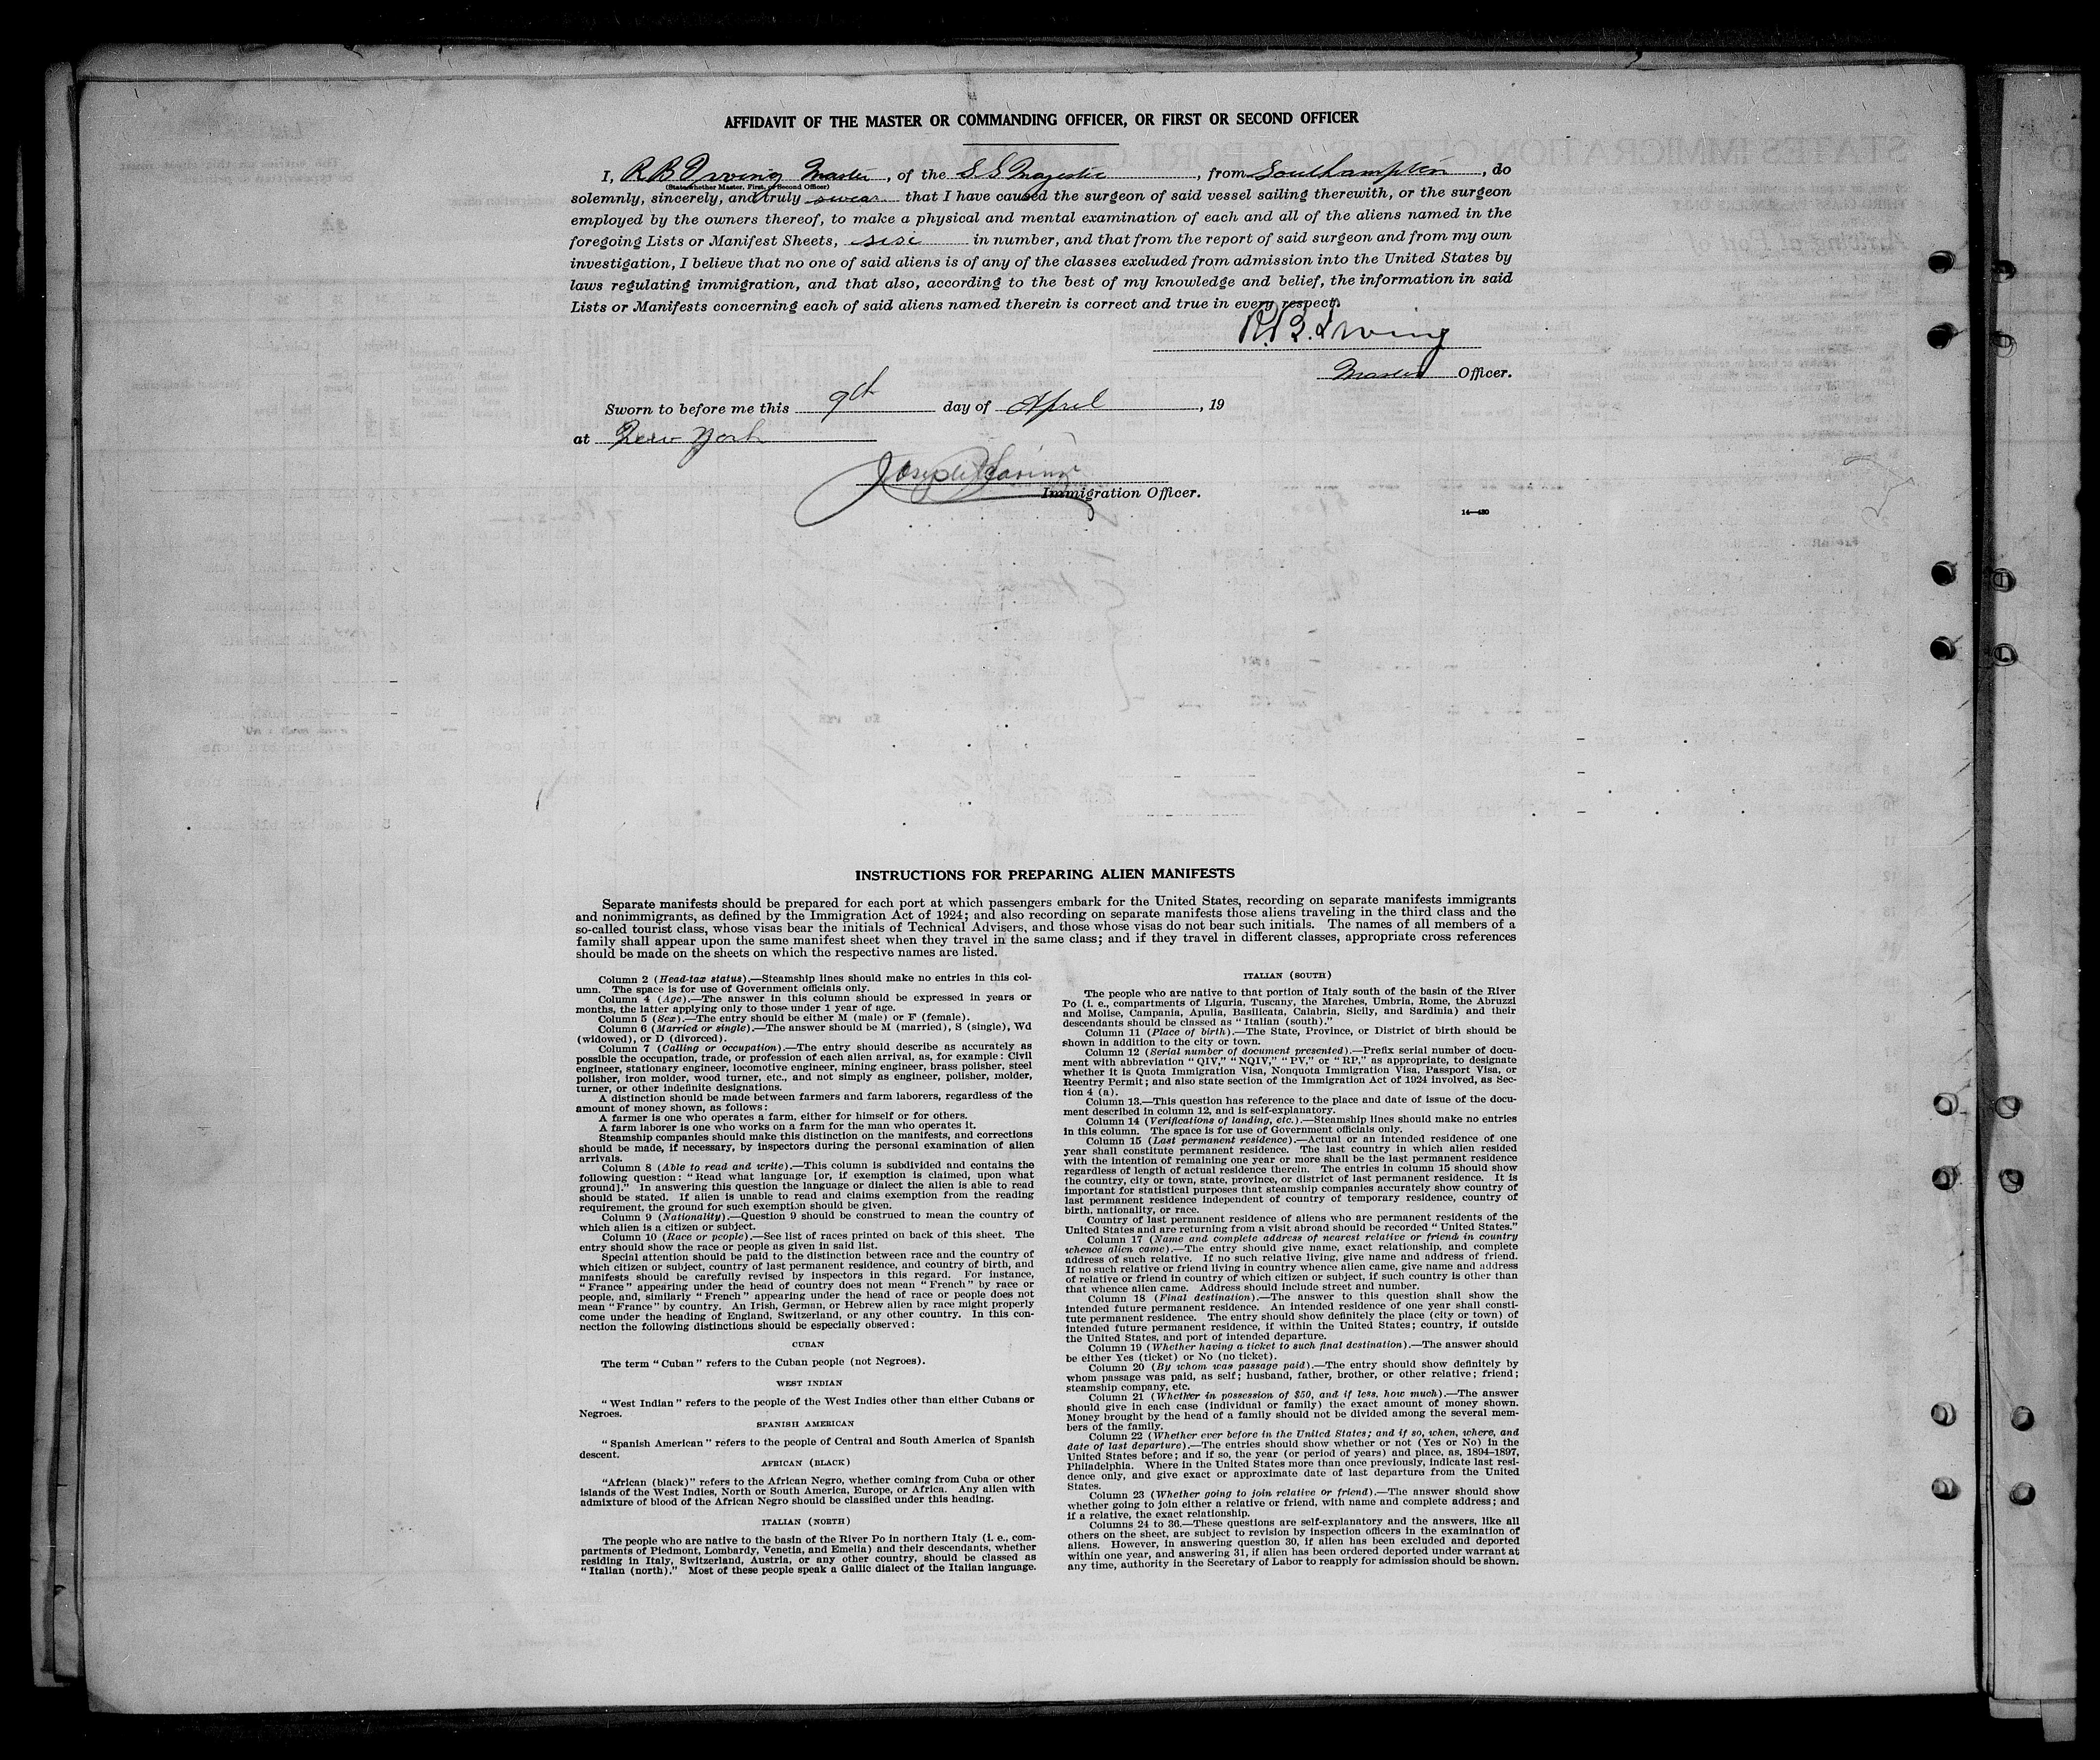 AFFIDAVIT OF THE MASTER OR COMMANDING OFFICER, OR FIRST OR SECOND OFFICER
I, R B Irving Master, of the S S Majestic, from Southampton, do
(State whether Master, First, or Second Officer)
solemnly, sincerely, and truly swear that I have caused the surgeon of said vessel sailing therewith, or the surgeon
employed by the owners thereof, to make a physical and mental examination of each and all of the aliens named in the
foregoing Lists or Manifest Sheets, in number, and that from the report of said surgeon and from my own
investigation, I believe that no one of said aliens is of any of the classes excluded from admission into the United States by
laws regulating immigration, and that also, according to the best of my knowledge and belief, the information in said
Lists or Manifests concerning each of said aliens named therein is correct and true in every respect.
R. B. Irving
Master Officer.
Sworn to before me this 9th day of April, 19
at New York
Joseph
Immigration Officer.
14—480
INSTRUCTIONS FOR PREPARING ALIEN MANIFESTS
Separate manifests should be prepared for each port at which passengers embark for the United States, recording on separate manifests immigrants
and nonimmigrants, as defined by the Immigration Act of 1924; and also recording on separate manifests those aliens traveling in the third class and the
so-called tourist class, whose visas bear the initials of Technical Advisers, and those whose visas do not bear such initials. The names of all members of a
family shall appear upon the same manifest sheet when they travel in the same class; and if they travel in different classes, appropriate cross references
should be made on the sheets on which the respective names are listed.
Column 2 (Head-tax status).—Steamship lines should make no entries in this col-
umn. The space is for use of Government officials only.
Column 4 (Age).—The answer in this column should be expressed in years or
months, the latter applying only to those under 1 year of age.
Column 5 (Sex).—The entry should be either M (male) or F (female).
Column 6 (Married or single).—The answer should be M (married), S (single), Wd
(widowed), or D (divorced).
Column 7 (Calling or occupation).—The entry should describe as accurately as
possible the occupation, trade, or profession of each alien arrival, as, for example: Civil
engineer, stationary engineer, locomotive engineer, mining engineer, brass polisher, steel
polisher, iron molder, wood turner, etc., and not simply as engineer, polisher, molder,
turner, or other indefinite designations.
A distinction should be made between farmers and farm laborers, regardless of the
amount of money shown, as follows:
A farmer is one who operates a farm, either for himself or for others.
A farm laborer is one who works on a farm for the man who operates it.
Steamship companies should make this distinction on the manifests, and corrections
should be made, if necessary, by inspectors during the personal examination of alien
arrivals.
Column 8 (Able to read and write).—This column is subdivided and contains the
following question: "Read what language [or, if exemption is claimed, upon what
ground]." In answering this question the language or dialect the alien is able to read
should be stated. If alien is unable to read and claims exemption from the reading
requirement, the ground for such exemption should be given.
Column 9 (Nationality).—Question 9 should be construed to mean the country of
which alien is a citizen or subject.
Column 10 (Race or people).—See list of races printed on back of this sheet. The
entry should show the race or people as given in said list.
Special attention should be paid to the distinction between race and the country of
which citizen or subject, country of last permanent residence, and country of birth, and
manifests should be carefully revised by inspectors in this regard. For instance,
"France" appearing under the head of country does not mean "French" by race or
people, and, similarly "French" appearing under the head of race or people does not
mean "France" by country. An Irish, German, or Hebrew alien by race might properly
come under the heading of England, Switzerland, or any other country. In this con-
nection the following distinctions should be especially observed:
CUBAN
The term "Cuban" refers to the Cuban people (not Negroes).
WEST INDIAN
"West Indian" refers to the people of the West Indies other than either Cubans or
Negroes.
SPANISH AMERICAN
"Spanish American" refers to the people of Central and South America of Spanish
descent.
AFRICAN (BLACK)
"African (black)" refers to the African Negro, whether coming from Cuba or other
islands of the West Indies, North or South America, Europe, or Africa. Any alien with
admixture of blood of the African Negro should be classified under this heading.
ITALIAN (NORTH)
The people who are native to the basin of the River Po in northern Italy (i. e., com-
partments of Piedmont, Lombardy, Venetia, and Emelia) and their descendants, whether
residing in Italy, Switzerland, Austria, or any other country, should be classed as
"Italian (north)." Most of these people speak a Gallic dialect of the Italian language.
ITALIAN (SOUTH)
The people who are native to that portion of Italy south of the basin of the River
Po (i. e., compartments of Liguria, Tuscany, the Marches, Umbria, Rome, the Abruzzi
and Molise, Campania, Apulia, Basilicata, Calabria, Sicily, and Sardinia) and their
descendants should be classed as "Italian (south)."
Column 11 (Place of birth).—The State, Province, or District of birth should be
shown in addition to the city or town.
Column 12 (Serial number of document presented).—Prefix serial number of docu-
ment with abbreviation "QIV," "NQIV," "PV," or "RP," as appropriate, to designate
whether it is Quota Immigration Visa, Nonquota Immigration Visa, Passport Visa, or
Reentry Permit; and also state section of the Immigration Act of 1924 involved, as Sec-
tion 4 (a).
Column 13.—This question has reference to the place and date of issue of the docu-
ment described in column 12, and is self-explanatory.
Column 14 (Verifications of landing, etc.).—Steamship lines should make no entries
in this column. The space is for use of Government officials only.
Column 15 (Last permanent residence).—Actual or an intended residence of one
year shall constitute permanent residence. The last country in which alien resided
with the intention of remaining one year or more shall be the last permanent residence
regardless of length of actual residence therein. The entries in column 15 should show
the country, city or town, state, province, or district of last permanent residence. It is
important for statistical purposes that steamship companies accurately show country of
last permanent residence independent of country of temporary residence, country of
birth, nationality, or race.
Country of last permanent residence of aliens who are permanent residents of the
United States and are returning from a visit abroad should be recorded "United States."
Column 17 (Name and complete address of nearest relative or friend in country
whence alien came).—The entry should give name, exact relationship, and complete
address of such relative. If no such relative living, give name and address of friend.
If no such relative or friend living in country whence alien came, give name and address
of relative or friend in country of which citizen or subject, if such country is other than
that whence alien came. Address should include street and number.
Column 18 (Final destination).—The answer to this question shall show the
intended future permanent residence. An intended residence of one year shall consti-
tute permanent residence. The entry should show definitely the place (city or town) of
intended future permanent residence, if within the United States; country, if outside
the United States, and port of intended departure.
Column 19 (Whether having a ticket to such final destination).—The answer should
be either Yes (ticket) or No (no ticket).
Column 20 (By whom was passage paid).—The entry should show definitely by
whom passage was paid, as self; husband, father, brother, or other relative; friend;
steamship company, etc.
Column 21 (Whether in possession of $50, and if less, how much).—The answer
should give in each case (individual or family) the exact amount of money shown.
Money brought by the head of a family should not be divided among the several mem-
bers of the family.
Column 22 (Whether ever before in the United States; and if so, when, where, and
date of last departure).—The entries should show whether or not (Yes or No) in the
United States before; and if so, the year (or period of years) and place, as, 1894-1897,
Philadelphia. Where in the United States more than once previously, indicate last resi-
dence only, and give exact or approximate date of last departure from the United
States.
Column 23 (Whether going to join relative or friend).—The answer should show
whether going to join either a relative or friend, with name and complete address; and
if a relative, the exact relationship.
Columns 24 to 36.—These questions are self-explanatory and the answers, like all
others on the sheet, are subject to revision by inspection officers in the examination of
aliens. However, in answering question 30, if alien has been excluded and deported
within one year, and answering 31, if alien has been ordered deported under warrant at
any time, authority in the Secretary of Labor to reapply for admission should be shown.